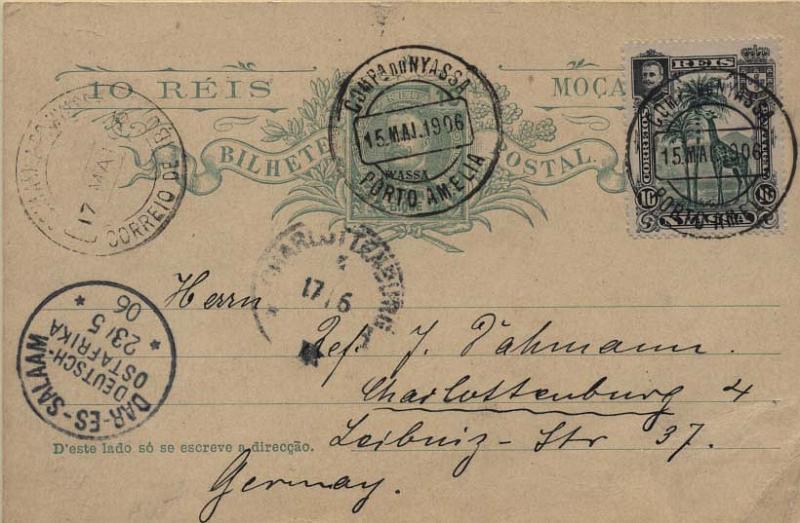 10 RÉIS MOÇA
BILHETE POSTAL
COMP.A DO NYASSA
15.MAI.1906
PORTO AMELIA
NYASSA
REIS
CORREIOS
10 10
COMP.A DO NYASSA
15.MAI.1906
PORTO AMELIA
17 MAI
CORREIO DE IBO
CHARLOTTENBURG
17/6
DAR-ES-SALAAM
DEUTSCH-
OSTAFRIKA
* 23/5 *
06
Herrn
Ref. J. Dahmann.
Charlottenburg 4
Leibniz-Str 37.
D'este lado só se escreve a direcção.
Germay.